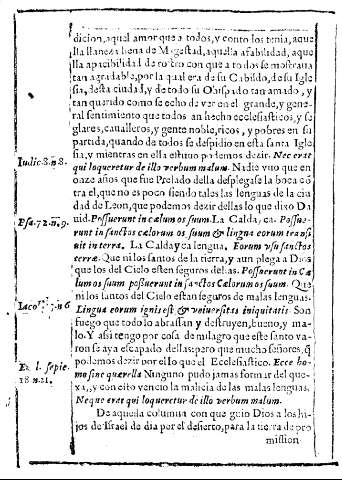 dicion, aquel amor que a todos, y con todos tenia, aque
lla llaneza llena de Magestad, aquella afabilidad, aque
lla apacibilidad de rostro con que a todos se mostraua
tan agradable, por la qual era de su Cabildo, de su Igle
sia, desta ciudad, y de todo su Obispado tan amado, y
tan querido como se echo de ver en el grande, y gene-
ral sentimiento que todos an hecho ecclesiasticos, y se
glares, caualleros, y gente noble, ricos, y pobres en su
partida, quando de todos se despidio en esta santa Igle
Iudic. 8. n 8.
sia, y mientras en ella estuuo podemos dezir. Nec erat
qui loqueretur de illo verbum malum. Nadie vuo que en
onze años que fue Prelado della desplegasse la boca cõ
tra el, que no es poco siendo tales las lenguas de la ciu
dad de Leon, que podemos dezir dellas lo que dixo Da
Psa. 72. n. 9.
uid. Possuerunt in cælum os suum. La Calda, ea. Possue-
runt in sanctos cælorum os suum & lingua eorum transi
uit in terra. La Calda y ea lengua. Eorum vsu sanctos
terræ. Que ni los santos de la tierra, y aun plega a Dios
que los del Cielo esten seguros dellas. Possuerunt in Cæ
lum os suum possuerunt in sanctos Cælorum os suum. Que
ni los santos del Cielo estan seguros de malas lenguas.
Iaco. 3. n 6
Lingua eorum ignis est & vniuersitas iniquitatis Son
fuego que todo lo abrassan y destruyen, bueno, y ma-
lo. Y assi tengo por cosa de milagro que este santo va-
ron se aya escapado dellas: pero que mucho señores, q̃
podemos dezir por el lo que el Ecclesiastico. Ecce ho-
Ec. l. sepie.
18 n. 21.
mo sine quærella Ninguno pudo jamas formar del que-
xa, y con esto vencio la malicia de las malas lenguas.
Neque erat qui loqueretur de illo verbum malum.
De aquella columna con que guio Dios a los hi-
jos de Israel de dia por el desierto, para la tierra de pro
mission